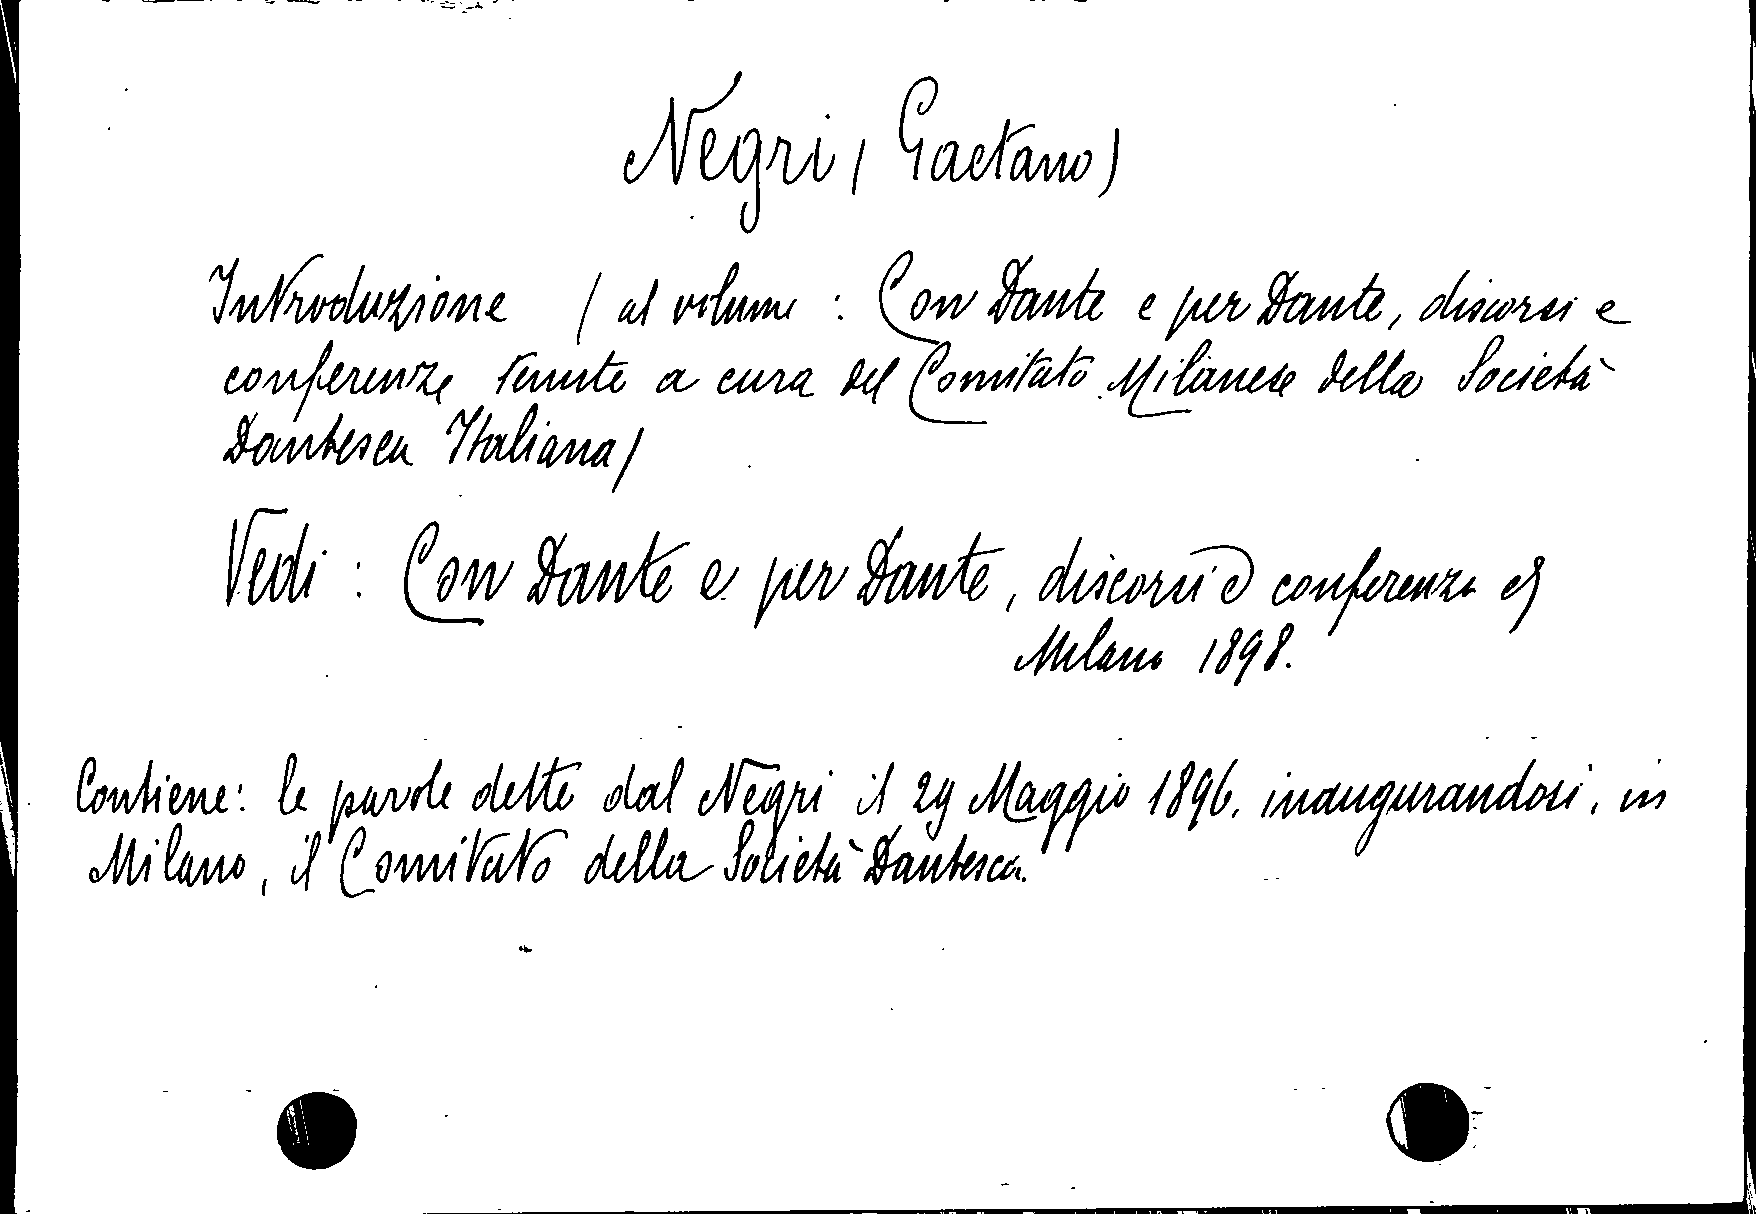 Negri (Gaetano)
Introduzione (al volume : Con Dante e per Dante, discorsi e
conferenze tenute a cura del Comitato Milanese della Società
Dantesca Italiana)
Vedi : Con Dante e per Dante, discorsi e conferenze
Milano 1898.
Contiene: le parole dette dal Negri il 29 Maggio 1896. inaugurandosi, in
Milano, il Comitato della Società Dantesca.